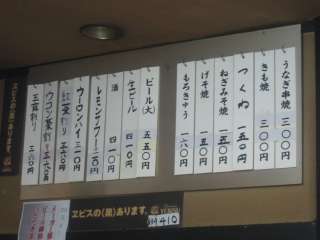 うなぎ串焼 三〇〇円
きも焼 三〇〇円
つくね 一五〇円
ねぎみそ焼 一五〇円
げそ焼 一五〇円
もろきゅう 一八〇円
ビール(大) 五五〇円
生ビール 四一〇円
酒 四一〇
レモンサワー 三一〇円
ウーロンハイ 三一〇円
三六〇円
ウコン茶割り 三六〇円
玉露割り 三六〇円
ヱビスの〈黒〉あります。
ヱビスの〈黒〉あります。
YEBISU
¥410